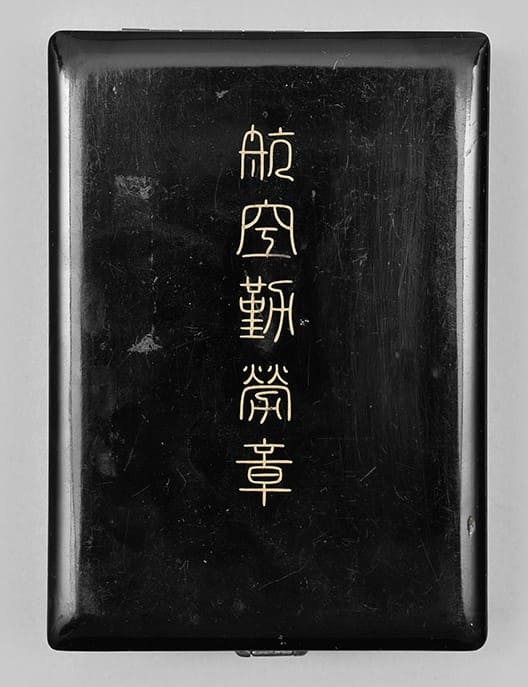 航空勤勞章